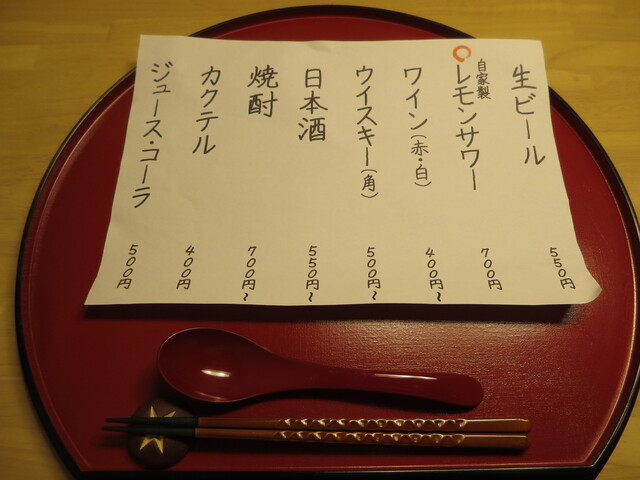 生ビール 550円
自家製
レモンサワー 700円
ワイン(赤・白) 400円~
ウイスキー(角) 500円~
日本酒 550円~
焼酎 700円~
カクテル 400円
ジュース・コーラ 500円